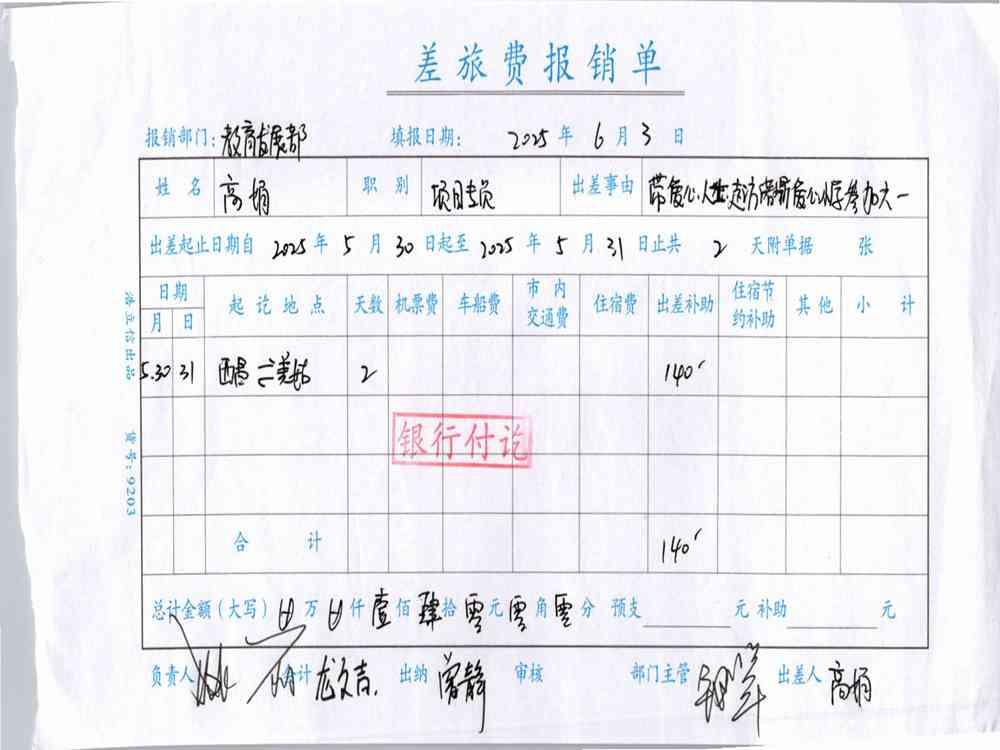 差旅费报销单
报销部门：教育发展部 填报日期： 2025 年 6 月 3 日
姓名 高娟 职别 项目专员 出差事由 带爱心人士走访 爱心小学参加六一
出差起止日期自 2025 年 5 月 30 日起至 2025 年 5 月 31 日止共 2 天附单据 张
日期 起讫地点 天数 机票费 车船费 市内交通费 住宿费 出差补助 住宿节约补助 其他 小计
月 日
5.30 31 西昌⇌美姑 2 140
银行付讫
合计 140
总计金额（大写） 万 仟 壹 佰 肆 拾 零 元 零 角 零 分 预支 元 补助 元
负责人 会计 龙文吉 出纳 曾静 审核 部门主管 出差人 高娟
浩立信出品 货号：9203